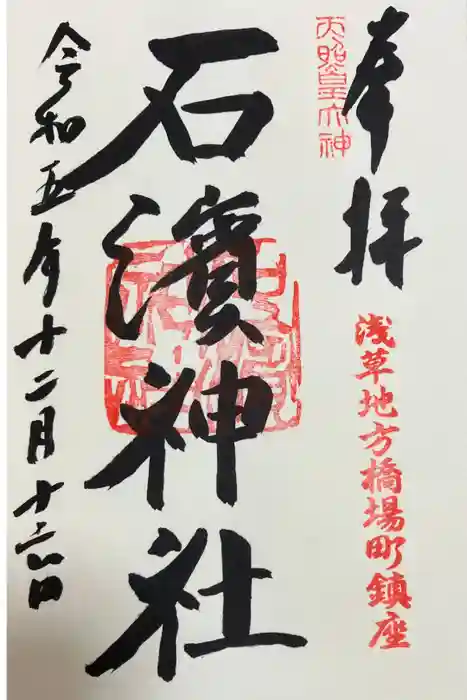 奉拝
天照皇大神
浅草地方橋場町鎮座
石濱神社
令和五年十二月十六日